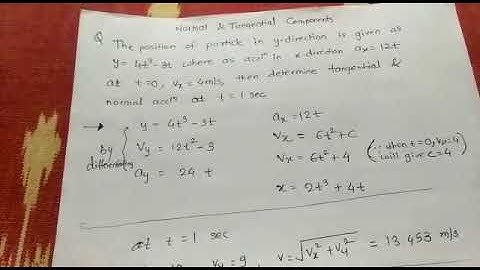 Normal & Tangential Components
Q The position of particle in y-direction is given as
y = 4t³-3t where as accⁿ in x-direction ax = 12t
at t=0, Vx = 4m/s, then determine tangential &
normal accⁿ at t = 1 sec
→ By differentiating
y = 4t³ - 3t
Vy = 12t² - 3
ay = 24 t
ax = 12t
Vx = 6t² + C
Vx = 6t² + 4 (∵ when t=0, Vx=4 will give C=4)
x = 2t³ + 4t
at t = 1 sec
Vy = 9, V = √Vx² + Vy² = 13.453 m/s